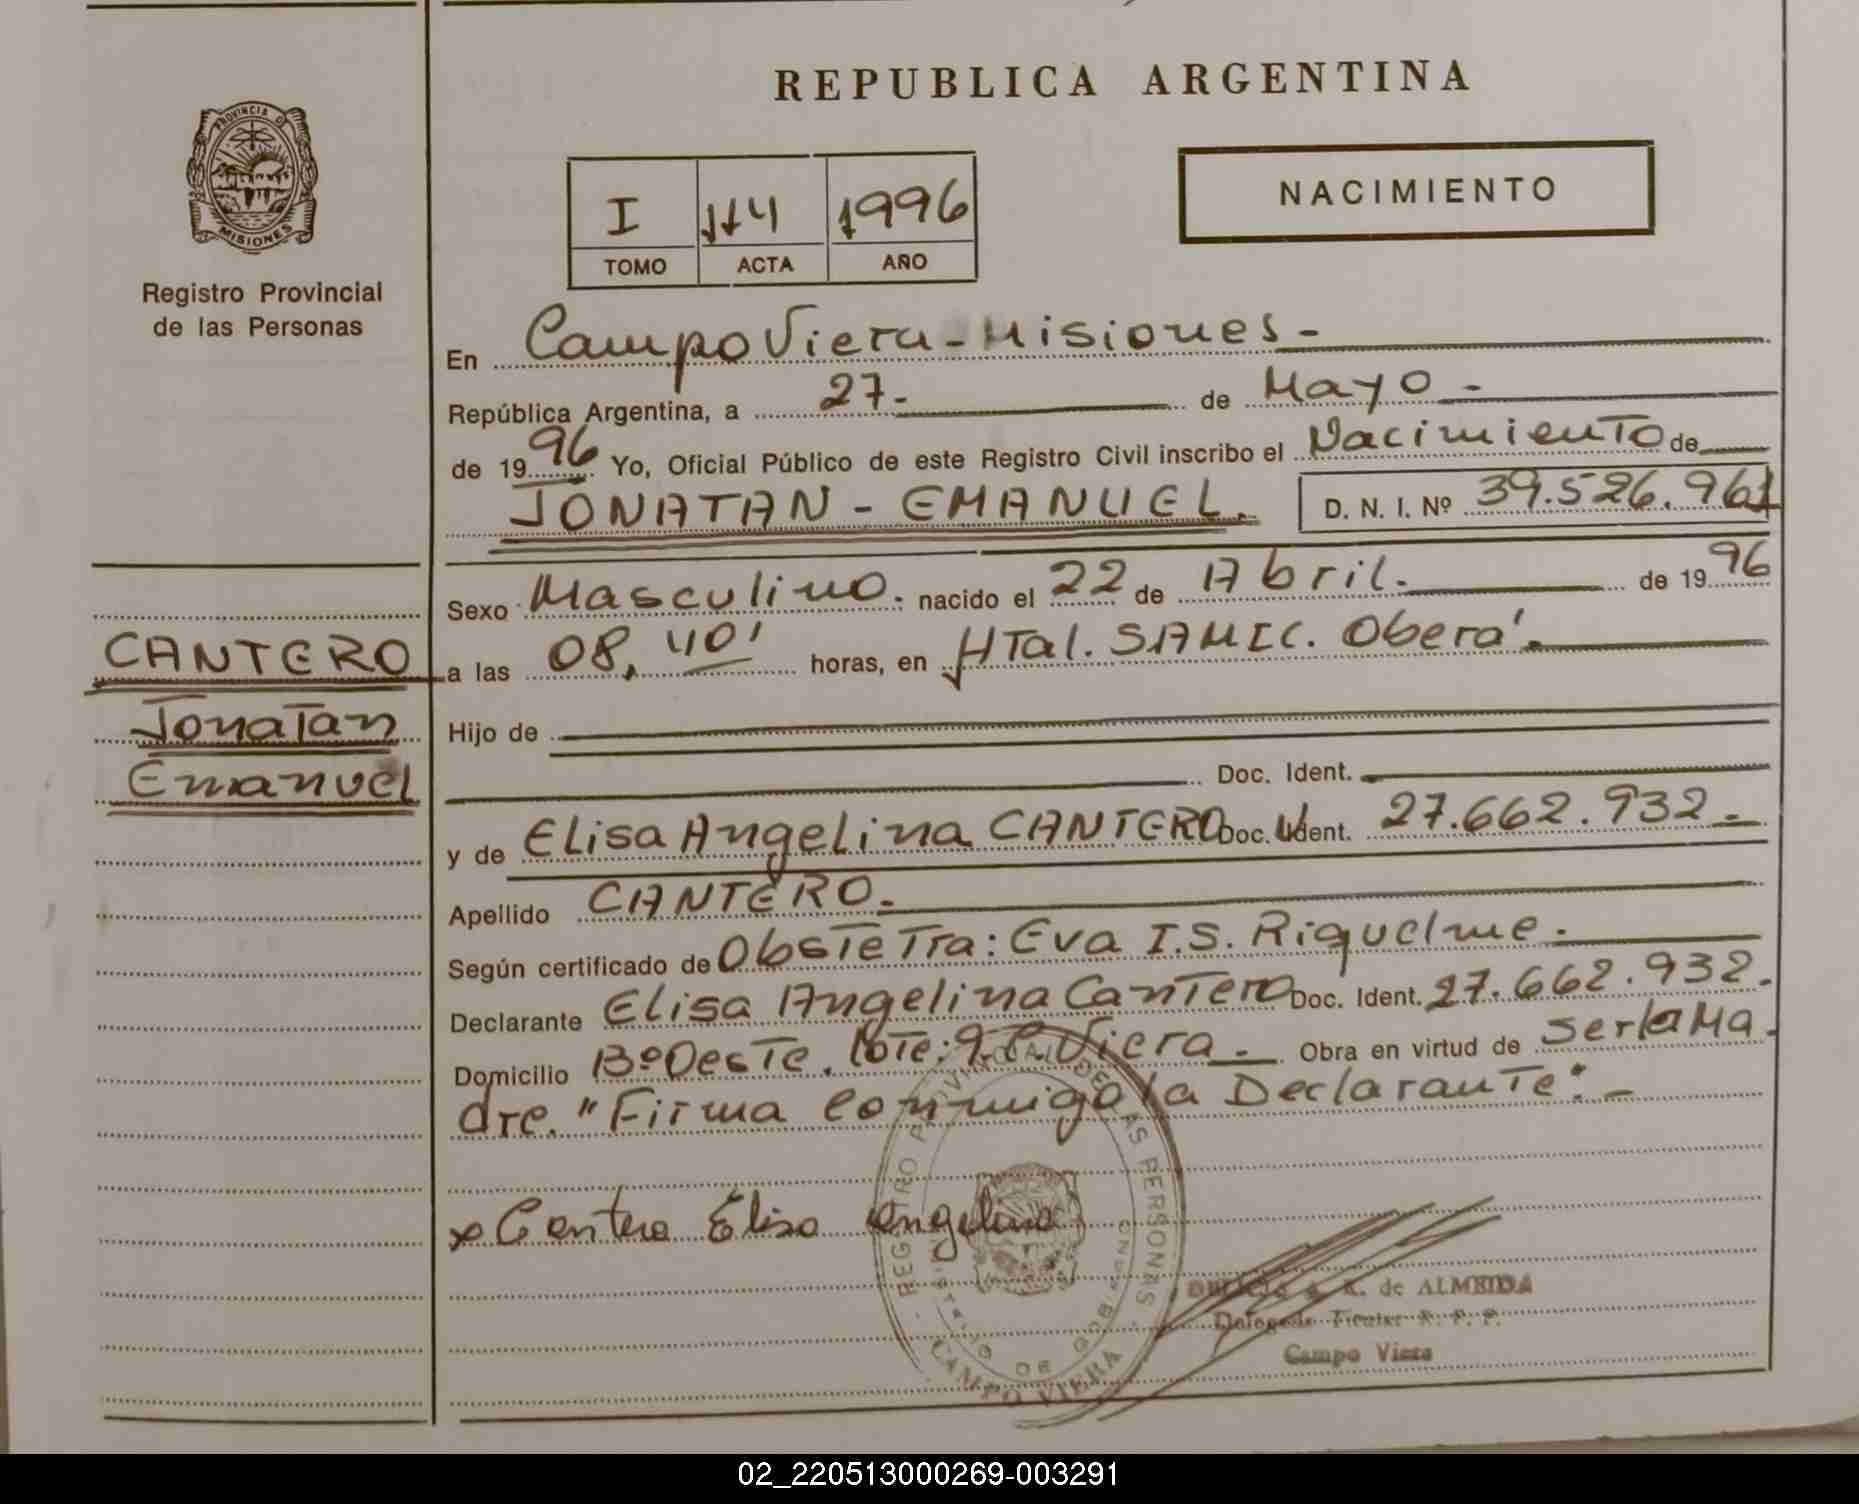 REPUBLICA ARGENTINA
PROVINCIA DE
MISIONES
Registro Provincial
de las Personas
I 114 1996
TOMO ACTA AÑO
NACIMIENTO
En Campo Viera - Misiones -
República Argentina, a 27- de Mayo -
de 1996 Yo, Oficial Público de este Registro Civil inscribo el Nacimiento de
JONATAN - EMANUEL. D. N. I. Nº 39.526.961
Sexo Masculino. nacido el 22 de Abril. de 1996
CANTERO
Jonatan
Emanuel
a las 08,40' horas, en HTal. SAMIC. Oberá.
Hijo de
Doc. Ident.
y de Elisa Angelina CANTERO Doc. Ident. 27.662.932.-
Apellido CANTERO.
Según certificado de Obstetra: Eva I.S. Riquelme.
Declarante Elisa Angelina Cantero Doc. Ident. 27.662.932.
Domicilio Bº Oeste. Lote: 9. C. Viera. - Obra en virtud de ser la Ma.
dre. "Firma conmigo la Declarante". -
x Cantero Elisa Angelina
REGISTRO PROVINCIAL DE LAS PERSONAS
CAMPO VIERA
de ALMEIDA
Delegada Titular R. P. P.
Campo Viera
02_220513000269-003291